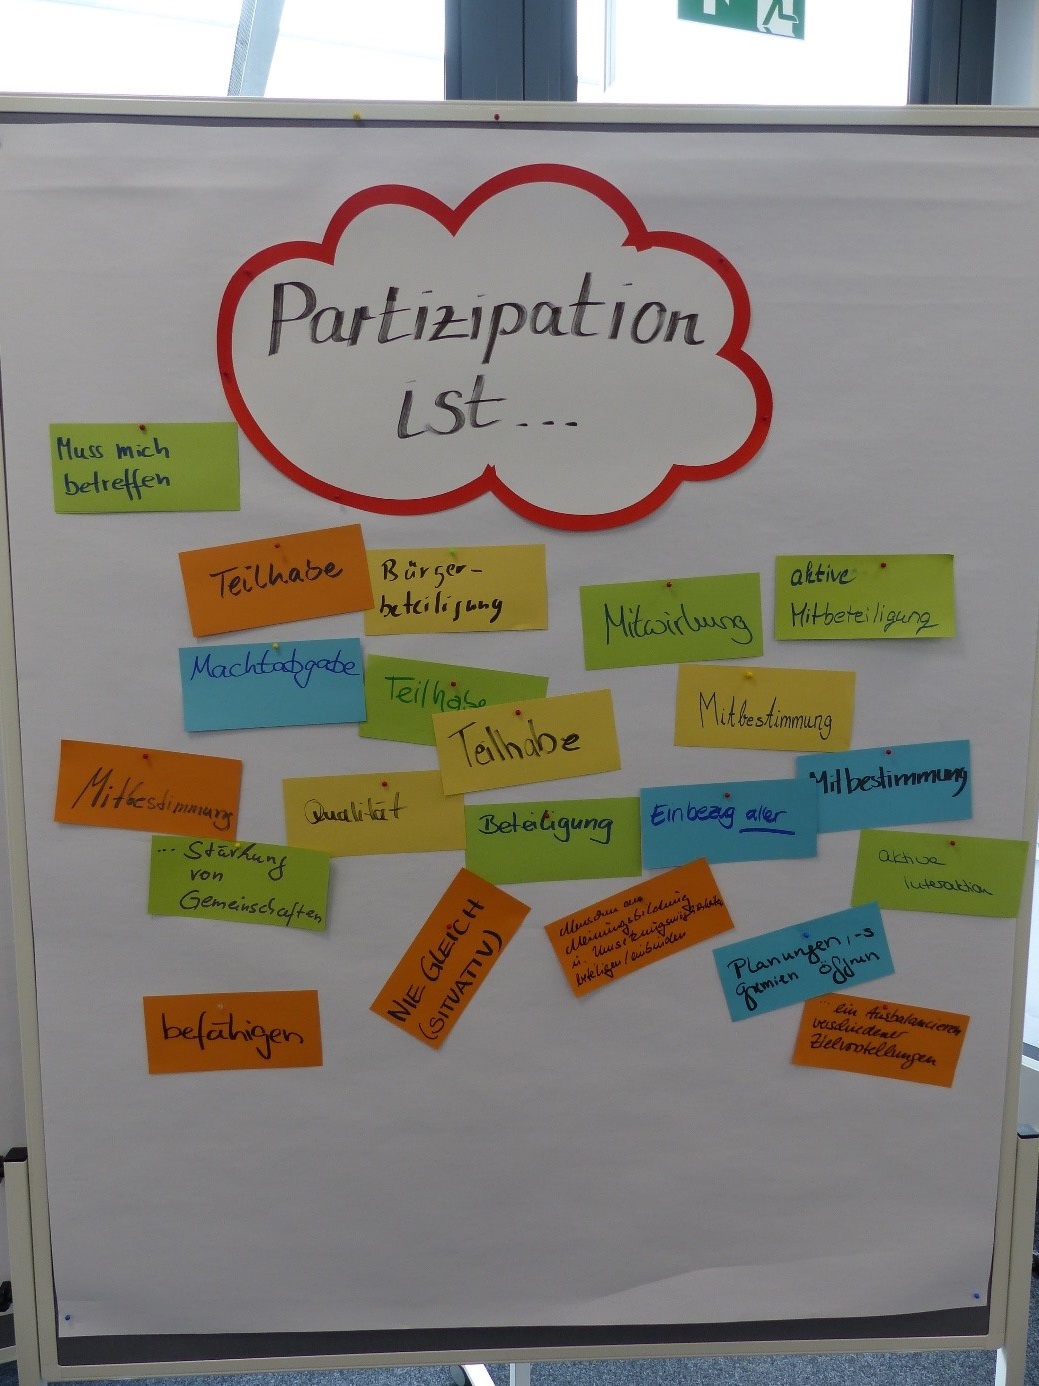 Partizipation
ist...
Muss mich
betreffen
Teilhabe
Bürger-
beteiligung
Mitwirkung
aktive
Mitbeteiligung
Machtabgabe
Teilhabe
Teilhabe
Mitbestimmung
Mitbestimmung
Qualität
Beteiligung
Einbezug aller
Mitbestimmung
... Stärkung
von
Gemeinschaften
NIE GLEICH
(SITUATIV)
Menschen an
Meinungsbildung
u.
beteiligen/einbinden
aktive
interaktion
Planungen, -s
gremien öffnen
befähigen
... ein Ausbalancieren
verschiedener
Zielvorstellungen